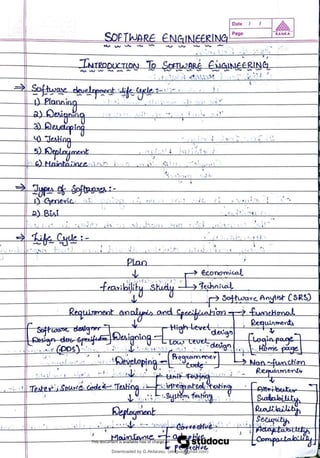 Date / /
Page
SOFTWARE ENGINEERING
INTRODUCTION TO SOFTWARE ENGINEERING
⇒ Software development Life Cycle :-
1) Planning
2) Designing
3) Developing
4) Testing
5) Deployment
6) Maintaince
⇒ Types of Softwares :-
1) Generic
2)
⇒ Life Cycle :-
Plan
Economical
feasibility Study → Technical
Software Analyst (SRS)
Requirement analysis and Specification → Functional Requirements
Software designer
Designing
High level design
Low level design
Login page
Home page
(DDS)
Developing
Programmer Code
Non-function Requirements
Unit Testing
Tester, Source Code ← Testing
Integrated Testing
System Testing
Attributes
Security
Deployment
Maintaince
Corrective
This document is available free of charge on
studocu
Downloaded by